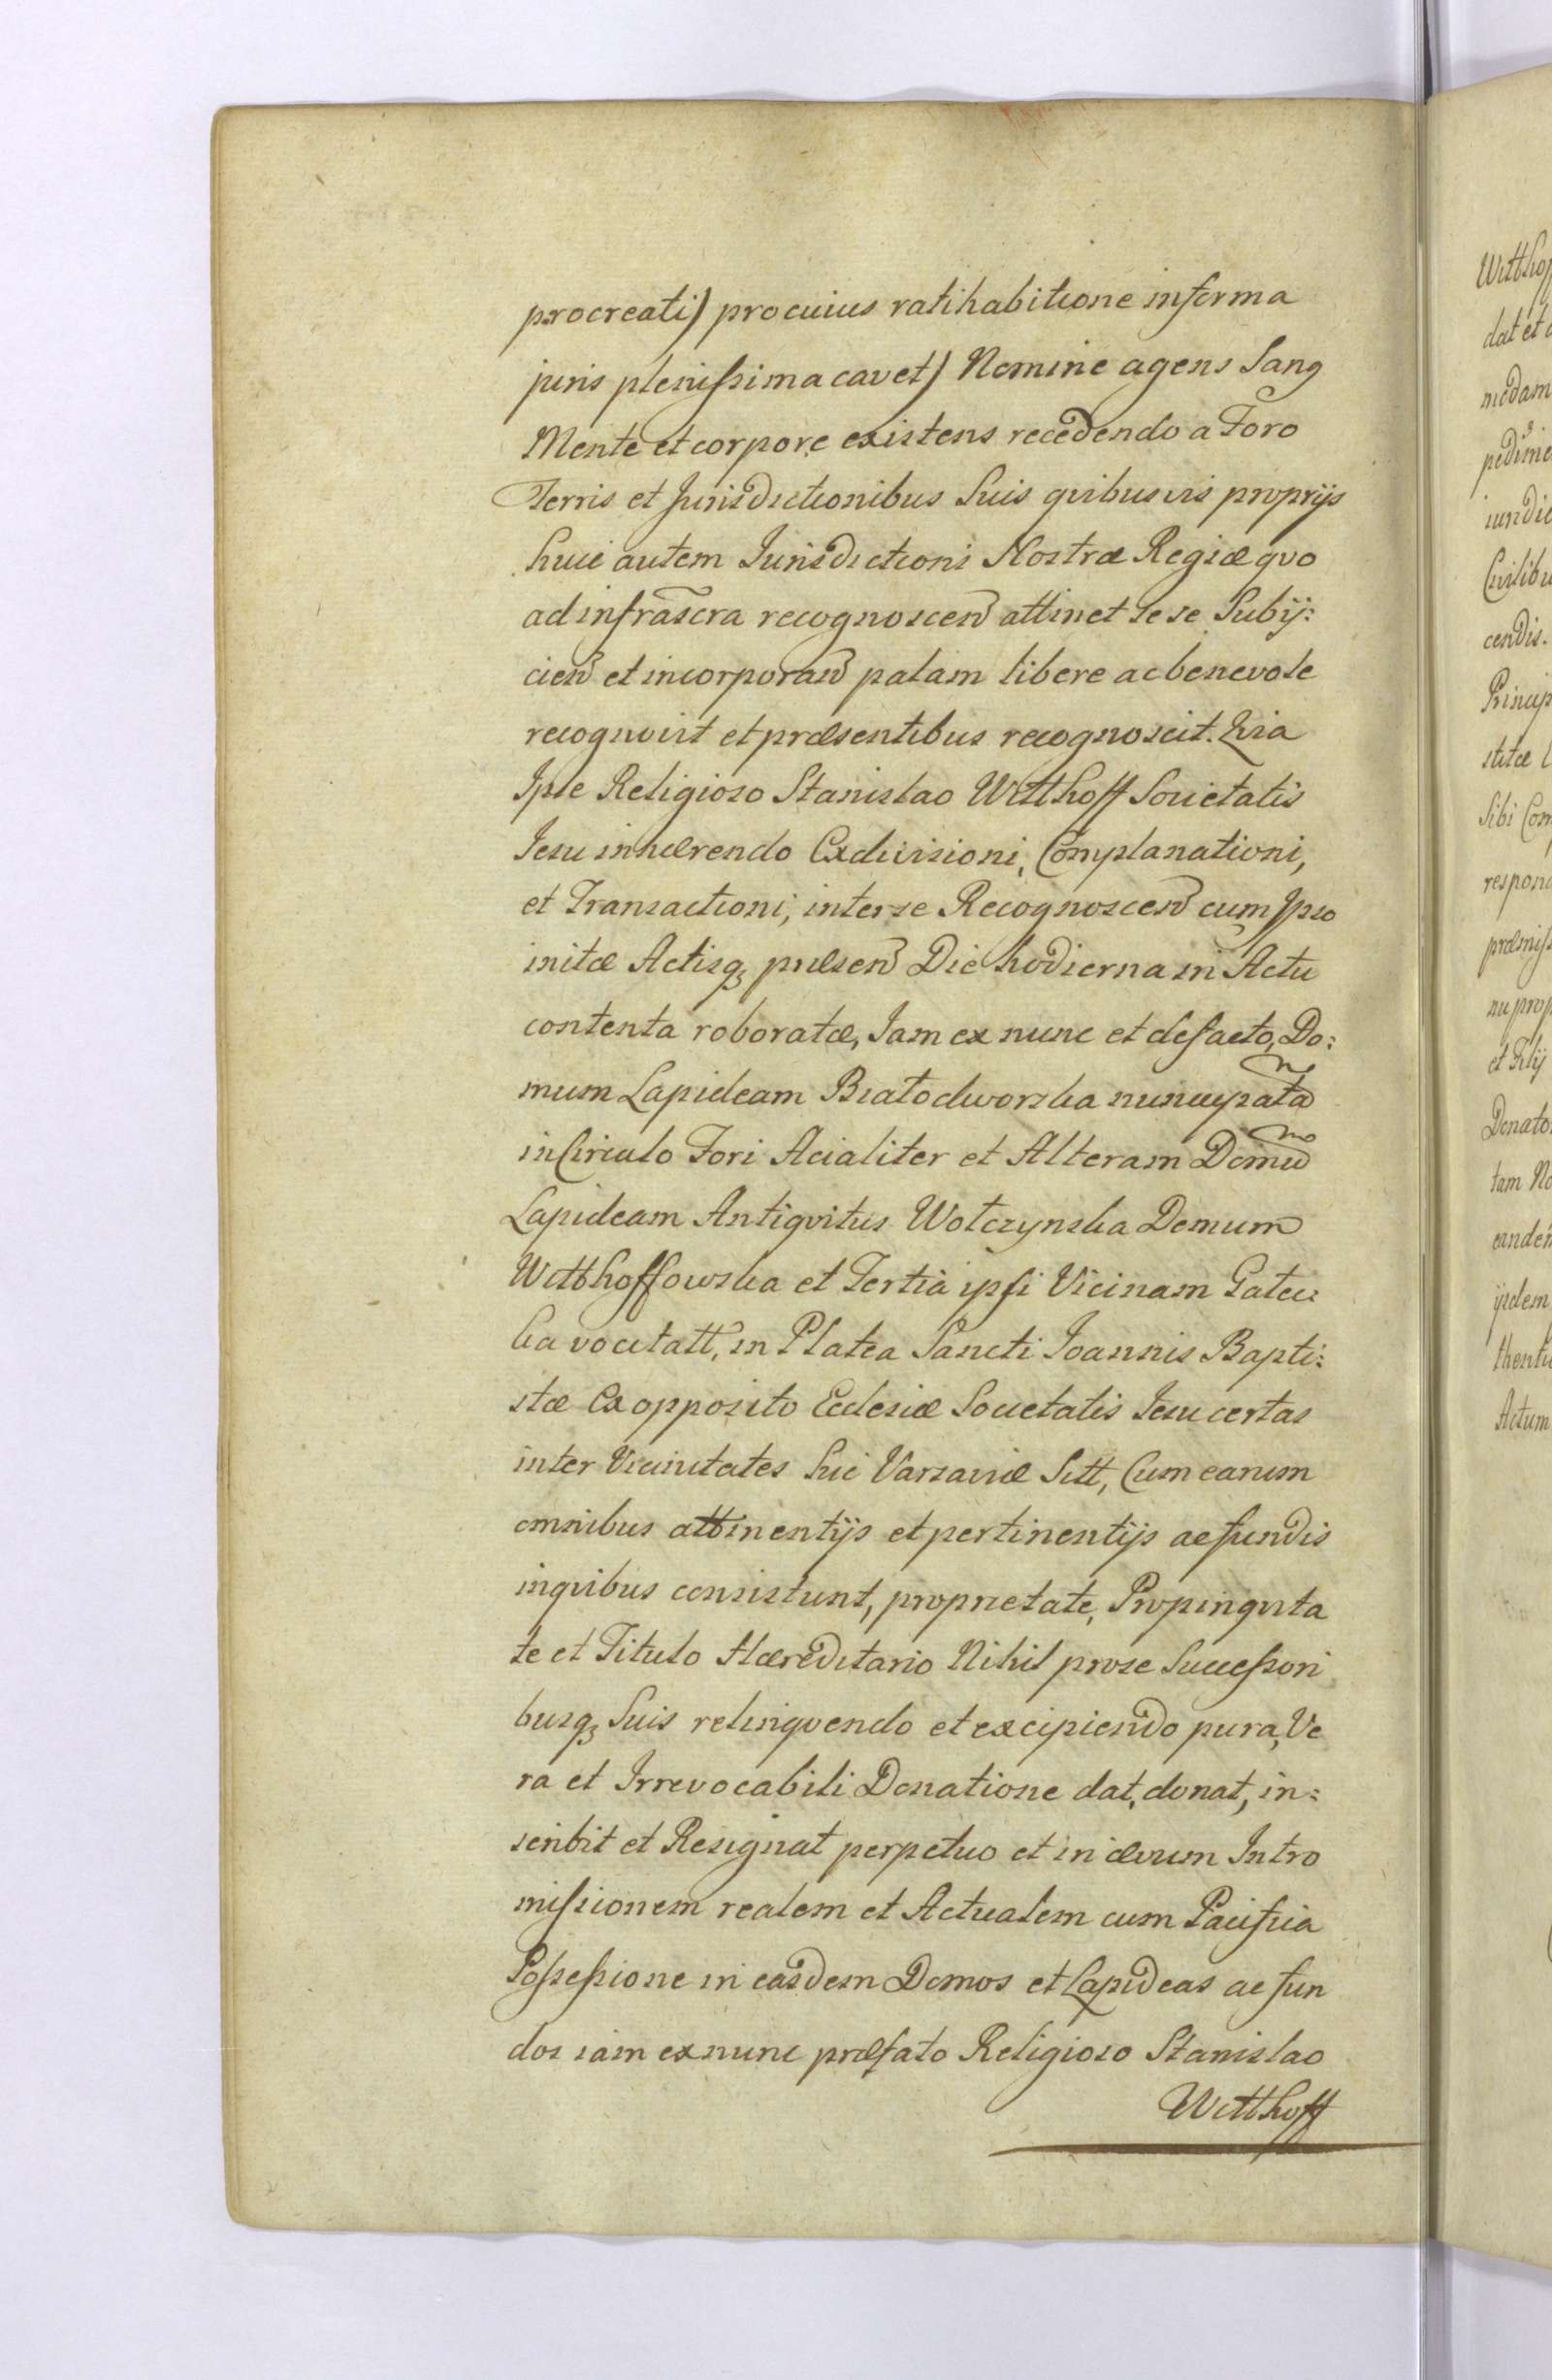 procreati) pro cuius ratihabitione in forma
juris plenissima cavet) Nomine agens Sana
Mente et corpore existens recedendo a Foro
Terris et Jurisdictionibus Suis quibusvis proprijs
huic autem Jurisdictioni Nostræ Regiæ quo
ad infrascra recognoscen attinet se se Subij:
cien et incorporan palam libere ac benevole
recognovit et præsentibus recognoscit. Qvia
Ipse Religioso Stanislao Witthoff Societatis
Jesu inhærendo Exdivisioni, Complanationi,
et Transactioni, inter se Recognoscen cum Ipso
initæ Actisq præsen Die hodierna in Actu
contenta roboratæ, Jam ex nunc et de facto, Do:
mum Lapideam Białodworska nuncupata
in Circulo Fori Acialiter et Alteram Domu
Lapideam Antiqvitus Wołczynska Domum
Witthoffowska et Tertia ipsi Vicinam Gałec
ka vocitatt, in Platea Sancti Joannis Bapti:
stæ Ex opposito Ecclesiæ Societatis Jesu certas
inter Vicinitates hic Varsaviæ Sitt, Cum earum
omnibus attinentijs et pertinentijs ac fundis
in qvibus consistunt, proprietate, Propinqvita
te et Titulo Hæreditario Nihil pro se Successori
busq Suis relinqvendo et excipiendo pura, Ve
ra et Irrevocabili Donatione dat, donat, in:
scribit et Resignat perpetuo et in ævum Intro
missionem realem et Actualem cum Pacifica
Possessione in easdem Domos et Lapideas ac fun
dos iam ex nunc præfato Religioso Stanislao
Witthoff
Witthof
dat et
cendis.
Princip
Sibi Com
respond
præmiss
nu prop
et Filij
Donato
tam No
eandem
ijsdem
thenti
Actum